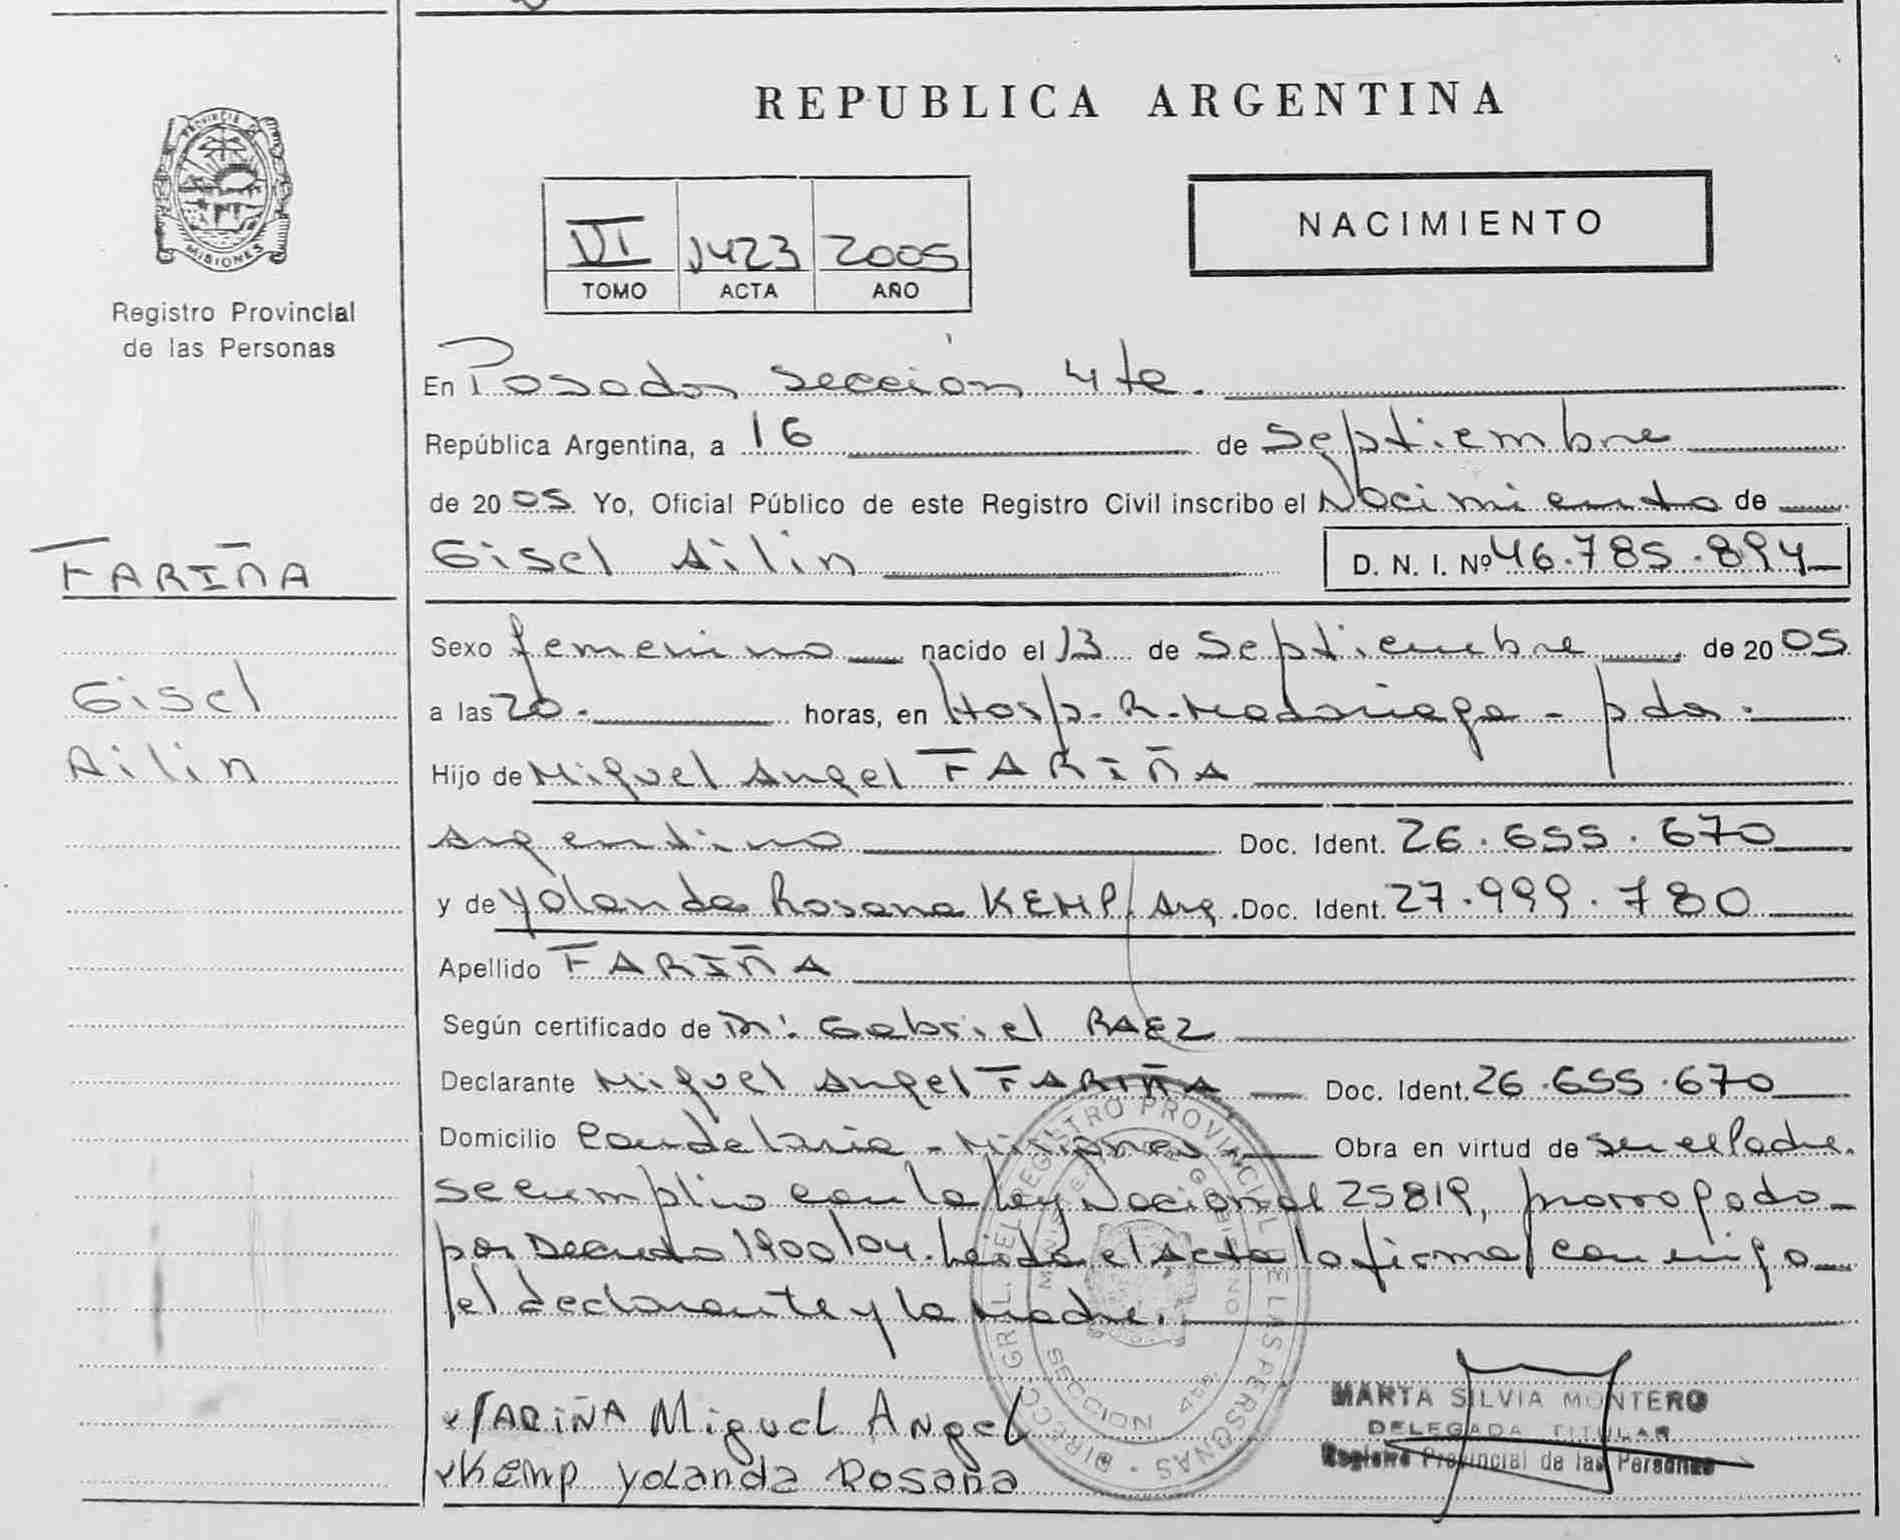 REPUBLICA ARGENTINA
PROVINCIA DE
MISIONES
Registro Provincial
de las Personas
NACIMIENTO
VI 1423 2005
TOMO ACTA AÑO
En Posadas sección 4ta.
República Argentina, a 16 de Septiembre
de 2005 Yo, Oficial Público de este Registro Civil inscribo el Nacimiento de
FARIÑA
Gisel Ailin D. N. I. Nº 46.785.894
Sexo femenino nacido el 13 de Septiembre de 2005
Gisel
a las 20. horas, en Hosp. R. Madariaga - pdas.
Ailin
Hijo de Miguel Angel FARIÑA
Argentino Doc. Ident. 26.655.670
y de Yolanda Rosana KEMP, Arg. Doc. Ident. 27.999.780
Apellido FARIÑA
Según certificado de Dr. Gabriel RAEZ
Declarante Miguel Angel FARIÑA Doc. Ident. 26.655.670
Domicilio Candelaria - Misiones - Obra en virtud de ser el Padre.
se cumplio con la Ley Nacional 25819, prorrogado
por Decreto 1900/04. Leída el Acta la firma conmigo
el declarante y la madre.
DIRECC. GRL. DEL REGISTRO PROVINCIAL DE LAS PERSONAS
MINISTERIO DE GOBIERNO
SECCION 4ta.
FARIÑA Miguel Angel
Kemp Yolanda Rosana
MARTA SILVIA MONTERO
DELEGADA TITULAR
Registro Provincial de las Personas